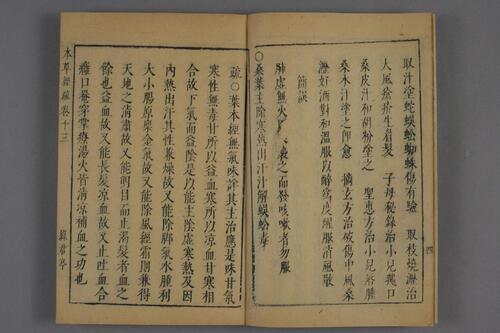 取汁塗蛇蜈蚣蜘蛛傷有驗 取枝燒瀝治
大風瘡疥生眉髮 子母秘錄治小兒鵝口
桑皮汁和胡粉塗之 聖惠方治小兒唇腫
桑木汁塗之即愈 摘玄方治破傷中風桑
瀝好酒對和溫服以醉爲度醒服消風散
簡誤
肺虛無火因寒襲之而發咳嗽者勿服
○桑葉主除寒熱出汗汁解蜈蚣毒
疏○葉本經無氣味詳其主治應是味甘氣
寒性無毒甘所以益血寒所以凉血甘寒相
合故下氣而益陰是以能主陰虛寒熱及因
內熱出汗其性兼燥故又能除脚氣水腫利
大小腸原稟金氣故又能除風經霜則兼得
天地之清肅故又能明目而止渴髮者血之
餘也益血故又能長髮凉血故又止吐血合
癰口罨穿掌療湯火皆清凉補血之功也
本草經疏卷十三
綠君亭